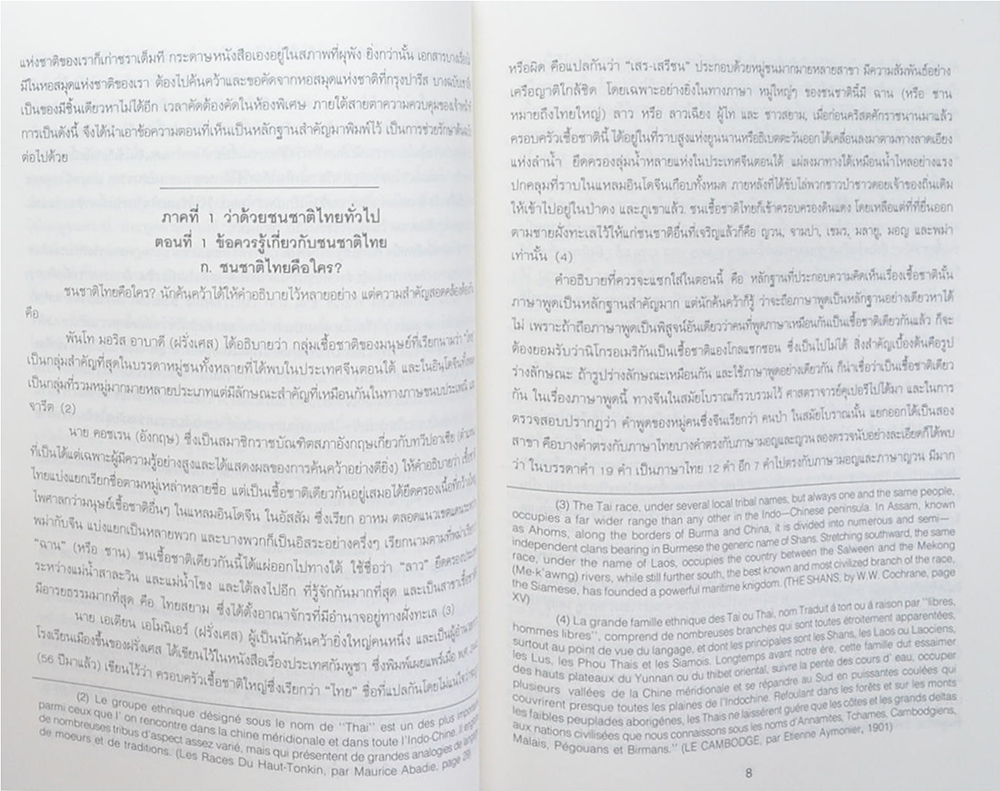 แห่งชาติของเราก็เก่าชราเต็มที กระดาษหนังสือเองอยู่ในสภาพที่ผุพัง ยิ่งกว่านั้น เอกสารบางเรื่อง
มีในหอสมุดแห่งชาติของเรา ต้องไปค้นคว้าและขอคัดจากหอสมุดแห่งชาติที่กรุงปารีส บางฉบับ
เป็นของมีชิ้นเดียวหาไม่ได้อีก เวลาคัดต้องคัดในห้องพิเศษ ภายใต้สายตาความควบคุมของเจ้าหน้าที่
การเป็นดังนี้ จึงได้นำเอาข้อความตอนที่เห็นเป็นหลักฐานสำคัญมาพิมพ์ไว้ เป็นการช่วยรักษา
ต่อไปด้วย
ภาคที่ 1 ว่าด้วยชนชาติไทยทั่วไป
ตอนที่ 1 ข้อควรรู้เกี่ยวกับชนชาติไทย
ก. ชนชาติไทยคือใคร?
ชนชาติไทยคือใคร? นักค้นคว้าได้ให้คำอธิบายไว้หลายอย่าง แต่ความสำคัญสอดคล้อง
คือ
พันโท มอริส อาบาดี (ฝรั่งเศส) ได้อธิบายว่า กลุ่มเชื้อชาติของมนุษย์ที่เรียกนามว่า
เป็นกลุ่มสำคัญที่สุดในบรรดาหมู่ชนทั้งหลายที่ได้พบในประเทศจีนตอนใต้ และในอินโดจีน
เป็นกลุ่มที่รวมหมู่มากมายหลายประเภทแต่มีลักษณะสำคัญที่เหมือนกันในทางภาษาขนบประเพณี และ
จารีต (2)
นาย คอชเรน (อังกฤษ) ซึ่งเป็นสมาชิกราชบัณฑิตสภาอังกฤษเกี่ยวกับทวีปอาเซีย
ที่เป็นได้แต่เฉพาะผู้มีความรู้อย่างสูงและได้แสดงผลของการค้นคว้าอย่างดียิ่ง) ให้คำอธิบายว่า
ไทยแบ่งแยกเรียกชื่อตามหมู่เหล่าหลายชื่อ แต่เป็นเชื้อชาติเดียวกันอยู่เสมอได้ยึดครองเนื้อที่
ไพศาลกว่ามนุษย์เชื้อชาติอื่นๆ ในแหลมอินโดจีน ในอัสสัม ซึ่งเรียก อาหม ตลอดแนวเขตแดน
พม่ากับจีน แบ่งแยกเป็นหลายพวก และบางพวกก็เป็นอิสระอย่างครึ่งๆ เรียกนามตามที่พม่าเรียก
“ฉาน” (หรือ ชาน) ชนเชื้อชาติเดียวกันนี้ได้แผ่ออกไปทางใต้ ใช้ชื่อว่า “ลาว” ยึดครองประเทศ
ระหว่างแม่น้ำสาละวิน และแม่น้ำโขง และใต้ลงไปอีก ที่รู้จักกันมากที่สุด และเป็นสาขาเชื้อชาติ
มีอารยธรรมมากที่สุด คือ ไทยสยาม ซึ่งได้ตั้งอาณาจักรที่มีอำนาจอยู่ทางฝั่งทะเล (3)
นาย เอเตียน เอโมนิเอร์ (ฝรั่งเศส) ผู้เป็นนักค้นคว้ายิ่งใหญ่คนหนึ่ง และเป็นผู้อำนวยการ
โรงเรียนเมืองขึ้นของฝรั่งเศส ได้เขียนไว้ในหนังสือเรื่องประเทศกัมพูชา ซึ่งพิมพ์เผยแพร่เมื่อ
(56 ปีมาแล้ว) เขียนไว้ว่า ครอบครัวเชื้อชาติใหญ่ซึ่งเรียกว่า “ไทย” ชื่อที่แปลกันโดยไม่แน่ใจว่า
(2) Le groupe ethnique désigné sous le nom de ''Thai'' est un des plus important
parmi ceux que l' on rencontre dans la chine méridionale et dans toute l'Indo-Chine. Il
de nombreuses tribus d'aspect assez varié, mais qui présentent de grandes analogies de langage
de moeurs et de traditions. (Les Races Du Haut-Tonkin, par Maurice Abadie, page
หรือผิด คือแปลกันว่า “เสร-เสรีชน” ประกอบด้วยหมู่ชนมากมายหลายสาขา มีความสัมพันธ์อย่าง
เครือญาติใกล้ชิด โดยเฉพาะอย่างยิ่งในทางภาษา หมู่ใหญ่ๆ ของชนชาตินี้มี ฉาน (หรือ ชาน
หมายถึงไทยใหญ่) ลาว หรือ ลาวเฉียง ผู้ไท และ ชาวสยาม, เมื่อก่อนคริสตศักราชนานมาแล้ว
ครอบครัวเชื้อชาตินี้ ได้อยู่ในที่ราบสูงแห่งยูนนานหรือธิเบตตะวันออกได้เคลื่อนลงมาตามทางลาดเอียง
แห่งลำน้ำ ยึดครองลุ่มน้ำหลายแห่งในประเทศจีนตอนใต้ แผ่ลงมาทางใต้เหมือนน้ำไหลอย่างแรง
ปกคลุมที่ราบในแหลมอินโดจีนเกือบทั้งหมด ภายหลังที่ได้ขับไล่พวกชาวป่าชาวดอยเจ้าของถิ่นเดิม
ให้เข้าไปอยู่ในป่าดง และภูเขาแล้ว. ชนเชื้อชาติไทยก็เข้าครอบครองดินแดง โดยเหลือแต่ที่ที่ยื่นออก
ตามชายฝั่งทะเลไว้ให้แก่ชนชาติอื่นที่เจริญแล้วก็คือ ญวน, จามปา, เขมร, มลายู, มอญ และพม่า
เท่านั้น (4)
คำอธิบายที่ควรจะแซกใส่ในตอนนี้ คือ หลักฐานที่ประกอบความคิดเห็นเรื่องเชื้อชาตินั้น
ภาษาพูดเป็นหลักฐานสำคัญมาก แต่นักค้นคว้าก็รู้ ว่าจะถือภาษาพูดเป็นหลักฐานอย่างเดียวหาได้
ไม่ เพราะถ้าถือภาษาพูดเป็นพิสูจน์อันเดียวว่าคนที่พูดภาษาเหมือนกันเป็นเชื้อชาติเดียวกันแล้ว ก็จะ
ต้องยอมรับว่านิโกรอเมริกันเป็นเชื้อชาติแองโกลแซกซอน ซึ่งเป็นไปไม่ได้ สิ่งสำคัญเบื้องต้นคือรูป
ร่างลักษณะ ถ้ารูปร่างลักษณะเหมือนกัน และใช้ภาษาพูดอย่างเดียวกัน ก็น่าเชื่อว่าเป็นเชื้อชาติเดียว
กัน ในเรื่องภาษาพูดนี้ ทางจีนในสมัยโบราณก็รวบรวมไว้ ศาสตราจารย์คุเปอรีไปได้มา และในการ
ตรวจสอบปรากฏว่า คำพูดของหมู่คนซึ่งจีนเรียกว่า คนป่า ในสมัยโบราณนั้น แยกออกได้เป็นสอง
สาขา คือบางคำตรงกับภาษาไทยบางคำตรงกับภาษามอญและญวน ลองตรวจนับอย่างละเอียดก็ได้พบ
ว่า ในบรรดาคำ 19 คำ เป็นภาษาไทย 12 คำ อีก 7 คำไปตรงกับภาษามอญและภาษาญวน มีมาก
(3) The Tai race, under several local tribal names, but always one and the same people,
occupies a far wider range than any other in the Indo—Chinese peninsula. In Assam, known
as Ahoms, along the borders of Burma and China, it is divided into numerous and semi—
independent clans bearing in Burmese the generic name of Shans. Stretching southward, the same
race, under the name of Laos, occupies the country between the Salween and the Mekong
(Me-k'awng) rivers, while still further south, the best known and most civilized branch of the race,
the Siamese, has founded a powerful maritime kngdom. (THE SHANS, by W.W. Cochrane, page
XV)
(4) La grande famille ethnique des Tai ou Thai, nom Traduit á tort ou á raison par ''libres,
hommes libres'', comprend de nombreuses branches qui sont toutes étroitement apparentées,
surtout au point de vue du langage, et dont les principales sont les Shans, les Laos ou Laociens,
les Lus, les Phou Thais et les Siamois. Longtemps avant notre ére, cette famille dut essaimer
des hauts plateaux du Yunnan ou du thibet oriental, suivre la pente des cours d' eau, occuper
plusieurs vallées de la Chine méridionale et se répandre au Sud en puissantes coulées qui
couvrirent presque toutes les plaines de l'Indochine. Refoulant dans les forêts et sur les monts
les faibles peuplades aborigénes, les Thais ne laissérent guére que les côtes et les grands deltas
aux nations civilisées que nous connaissons sous les noms d'Annamites, Tchames, Cambodgiens,
Malais, Pégouans et Birmans.'' (LE CAMBODGE, par Etienne Aymonier, 1901)
8